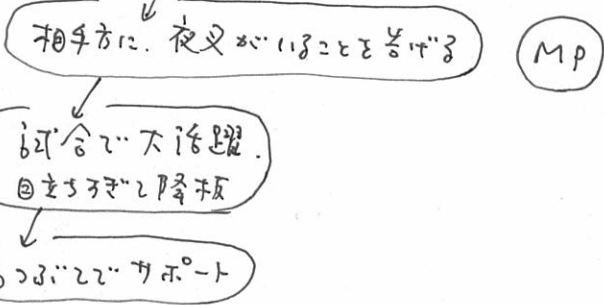 相手方に、夜叉がいることを告げる
MP
試合で大活躍.
目立ちすぎて降板
つぶてでサポート